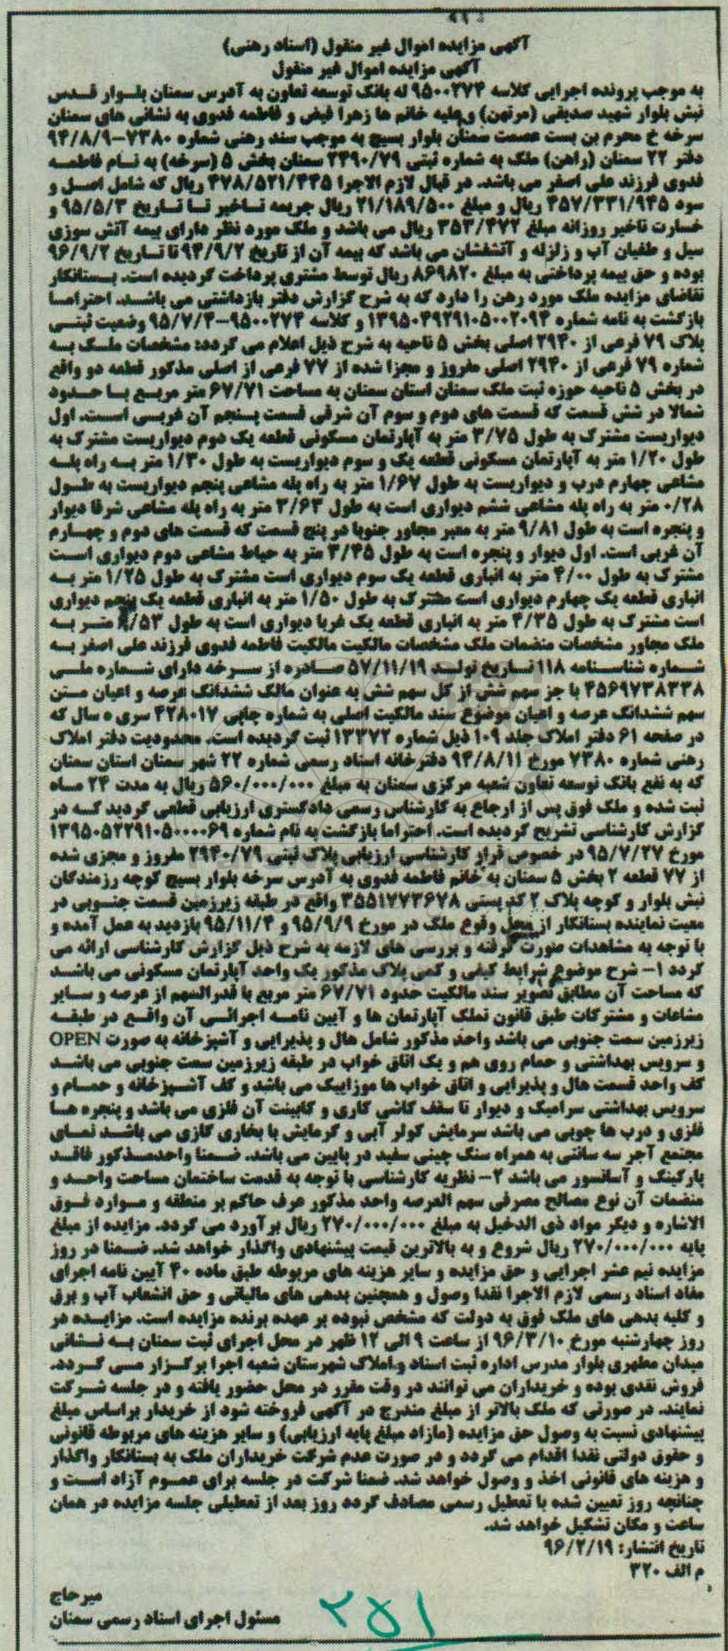 آگهی مزایده اموال غیر منقول (اسناد رهنی)
آگهی مزایده اموال غیر منقول
به موجب پرونده اجرایی کلاسه ۹۵۰۰۲۷۴ له بانک توسعه تعاون به آدرس سمنان بلوار قدس
نبش بلوار شهید صدیقی (مرتهن) وعلیه خانم ها زهرا فیض و فاطمه فدوی به نشانی های سمنان
سرخه خ محرم بن بست عصمت سمنان بلوار بسیج به موجب سند رهنی شماره ۷۳۸۰-۹۴/۸/۹
دفتر ۲۲ سمنان (راهن) ملک به شماره ثبتی ۲۴۹۰/۷۹ سمنان بخش ۵ (سرخه) به نام فاطمه
فدوی فرزند علی اصغر می باشد. در قبال لازم الاجرا ۴۷۸/۵۲۱/۴۴۵ ریال که شامل اصل و
سود ۴۵۷/۳۳۱/۹۴۵ ریال و مبلغ ۲۱/۱۸۹/۵۰۰ ریال جریمه تاخیر تا تاریخ ۹۵/۵/۳ و
خسارت تاخیر روزانه مبلغ ۳۵۳/۴۷۲ ریال می باشد و ملک مورد نظر دارای بیمه آتش سوزی
سیل و طغیان آب و زلزله و آتشفشان می باشد که بیمه آن از تاریخ ۹۴/۹/۲ تا تاریخ ۹۶/۹/۲
بوده و حق بیمه پرداختی به مبلغ ۸۶۹۸۲۰ ریال توسط مشتری پرداخت گردیده است. بستانکار
تقاضای مزایده ملک مورد رهن را دارد که به شرح گزارش دفتر بازداشتی می باشد. احتراما
بازگشت به نامه شماره ۱۳۹۵۰۴۹۲۹۱۰۵۰۰۲۰۹۴ و کلاسه ۹۵۰۰۲۷۴-۹۵/۷/۴ وضعیت ثبتی
پلاک ۷۹ فرعی از ۲۹۴۰ اصلی بخش ۵ ناحیه به شرح ذیل اعلام می گردد: مشخصات ملک به
شماره ۷۹ فرعی از ۲۹۴۰ اصلی مفروز و مجزا شده از ۷۷ فرعی از اصلی مذکور قطعه دو واقع
در بخش ۵ ناحیه حوزه ثبت ملک سمنان استان سمنان به مساحت ۶۷/۷۱ متر مربع با حدود
شمالا در شش قسمت که قسمت های دوم و سوم آن شرقی قسمت پنجم آن غربی است. اول
دیواریست مشترک به طول ۳/۷۵ متر به آپارتمان مسکونی قطعه یک دوم دیواریست مشترک به
طول ۱/۲۰ متر به آپارتمان مسکونی قطعه یک و سوم دیواریست به طول ۱/۳۰ متر به راه پله
مشاعی چهارم درب و دیواریست به طول ۱/۶۷ متر به راه پله مشاعی پنجم دیواریست به طول
۰/۲۸ متر به راه پله مشاعی ششم دیواری است به طول ۳/۶۳ متر به راه پله مشاعی شرقا دیوار
و پنجره است به طول ۹/۸۱ متر به معبر مجاور جنوبا در پنج قسمت که قسمت های دوم و چهارم
آن غربی است. اول دیوار و پنجره است به طول ۳/۴۵ متر به حیاط مشاعی دوم دیواری است
مشترک به طول ۴/۰۰ متر به انباری قطعه یک سوم دیواری است مشترک به طول ۱/۲۵ متر به
انباری قطعه یک چهارم دیواری است مشترک به طول ۱/۵۰ متر به انباری قطعه یک پنجم دیواری
است مشترک به طول ۴/۳۵ متر به انباری قطعه یک غربا دیواری است به طول /۵۳ متر به
ملک مجاور مشخصات منضمات ملک مشخصات مالکیت مالکیت فاطمه فدوی فرزند علی اصغر به
شماره شناسنامه ۱۱۸ تاریخ تولد ۵۷/۱۱/۱۹ صادره از سرخه دارای شماره ملی
۴۵۶۹۷۳۸۳۳۸ با جز سهم شش از کل سهم شش به عنوان مالک ششدانگ عرصه و اعیان متن
سهم ششدانگ عرصه و اعیان موضوع سند مالکیت اصلی به شماره چاپی ۴۲۸۰۱۷ سری ه سال که
در صفحه ۶۱ دفتر املاک جلد ۱۰۹ ذیل شماره ۱۳۳۷۲ ثبت گردیده است. محدودیت دفتر املاک
رهنی شماره ۷۳۸۰ مورخ ۹۴/۸/۱۱ دفترخانه اسناد رسمی شماره ۲۲ شهر سمنان استان سمنان
که به نفع بانک توسعه تعاون شعبه مرکزی سمنان به مبلغ ۵۶۰/۰۰۰/۰۰۰ ریال به مدت ۲۴ ماه
ثبت شده و ملک فوق پس از ارجاع به کارشناس رسمی دادگستری ارزیابی قطعی گردید که در
گزارش کارشناسی تشریح گردیده است. احتراما بازگشت به نام شماره ۱۳۹۵۰۵۲۲۹۱۰۵۰۰۰۰۶۹
مورخ ۹۵/۷/۲۷ در خصوص قرار کارشناسی ارزیابی پلاک ثبتی ۲۹۴۰/۷۹ مفروز و مجزی شده
از ۷۷ قطعه ۲ بخش ۵ سمنان به خانم فاطمه فدوی به آدرس سرخه بلوار بسیج کوچه رزمندگان
نبش بلوار و کوچه پلاک ۲ کد پستی ۳۵۵۱۷۷۳۶۷۸ واقع در طبقه زیرزمین قسمت جنوبی در
معیت نماینده بستانکار از محل وقوع ملک در مورخ ۹۵/۹/۹ و ۹۵/۱۱/۴ بازدید به عمل آمده و
با توجه به مشاهدات صورت گرفته و بررسی های لازمه به شرح ذیل گزارش کارشناسی ارائه می
گردد ۱- شرح موضوع شرایط کیفی و کمی پلاک مذکور یک واحد آپارتمان مسکونی می باشد
که مساحت آن مطابق تصویر سند مالکیت حدود ۶۷/۷۱ متر مربع با قدرالسهم از عرصه و سایر
مشاعات و مشترکات طبق قانون تملک آپارتمان ها و آیین نامه اجرائی آن واقع در طبقه
زیرزمین سمت جنوبی می باشد واحد مذکور شامل هال و پذیرایی و آشپزخانه به صورت OPEN
و سرویس بهداشتی و حمام روی هم و یک اتاق خواب در طبقه زیرزمین سمت جنوبی می باشد
کف واحد قسمت هال و پذیرایی و اتاق خواب ها موزاییک می باشد و کف آشپزخانه و حمام و
سرویس بهداشتی سرامیک و دیوار تا سقف کاشی کاری و کابینت آن فلزی می باشد و پنجره ها
فلزی و درب ها چوبی می باشد سرمایش کولر آبی و گرمایش با بخاری گازی می باشد نمای
مجتمع آجر سه سانتی به همراه سنگ چینی سفید در پایین می باشد. ضمنا واحدمذکور فاقد
پارکینگ و آسانسور می باشد ۲- نظریه کارشناسی با توجه به قدمت ساختمان مساحت واحد و
منضمات آن نوع مصالح مصرفی سهم العرصه واحد مذکور عرف حاکم بر منطقه و موارد فوق
الاشاره و دیگر مواد ذی الدخیل به مبلغ ۲۷۰/۰۰۰/۰۰۰ ریال برآورد می گردد. مزایده از مبلغ
پایه ۲۷۰/۰۰۰/۰۰۰ ریال شروع و به بالاترین قیمت پیشنهادی واگذار خواهد شد. ضمنا در روز
مزایده نیم عشر اجرایی و حق مزایده و سایر هزینه های مربوطه طبق ماده ۴۰ آیین نامه اجرای
مفاد اسناد رسمی لازم الاجرا نقدا وصول و همچنین بدهی های مالیاتی و حق انشعاب آب و برق
و کلیه بدهی های ملک فوق به دولت که مشخص نبوده بر عهده برنده مزایده است. مزایده در
روز چهارشنبه مورخ ۹۶/۳/۱۰ از ساعت ۹ الی ۱۲ ظهر در محل اجرای ثبت سمنان به نشانی
میدان مطهری بلوار مدرس اداره ثبت اسناد و املاک شهرستان شعبه اجرا برگزار می گردد.
فروش نقدی بوده و خریداران می توانند در وقت مقرر در محل حضور یافته و در جلسه شرکت
نمایند. در صورتی که ملک بالاتر از مبلغ مندرج در آگهی فروخته شود از خریدار براساس مبلغ
پیشنهادی نسبت به وصول حق مزایده (مازاد مبلغ پایه ارزیابی) و سایر هزینه های مربوطه قانونی
و حقوق دولتی نقدا اقدام می گردد و در صورت عدم شرکت خریداران ملک به بستانکار واگذار
و هزینه های قانونی اخذ و وصول خواهد شد. ضمنا شرکت در جلسه برای عموم آزاد است و
چنانچه روز تعیین شده با تعطیل رسمی مصادف گردد روز بعد از تعطیلی جلسه مزایده در همان
ساعت و مکان تشکیل خواهد شد.
تاریخ انتشار: ۹۶/۲/۱۹
م الف ۳۲۰
میرحاج
مسئول اجرای اسناد رسمی سمنان
۲۵۱